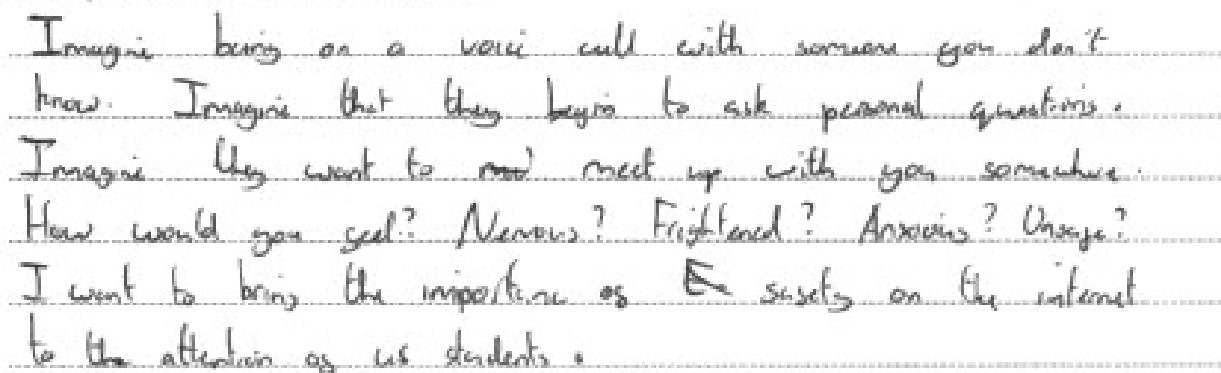 Imagine being on a voice call with someone you don't
know. Imagine that they begin to ask personal questions.
Imagine they want to meet up with you somewhere.
How would you feel? Nervous? Frightened? Anxious? Unsafe?
I want to bring the importance of safety on the internet
to the attention of us students.